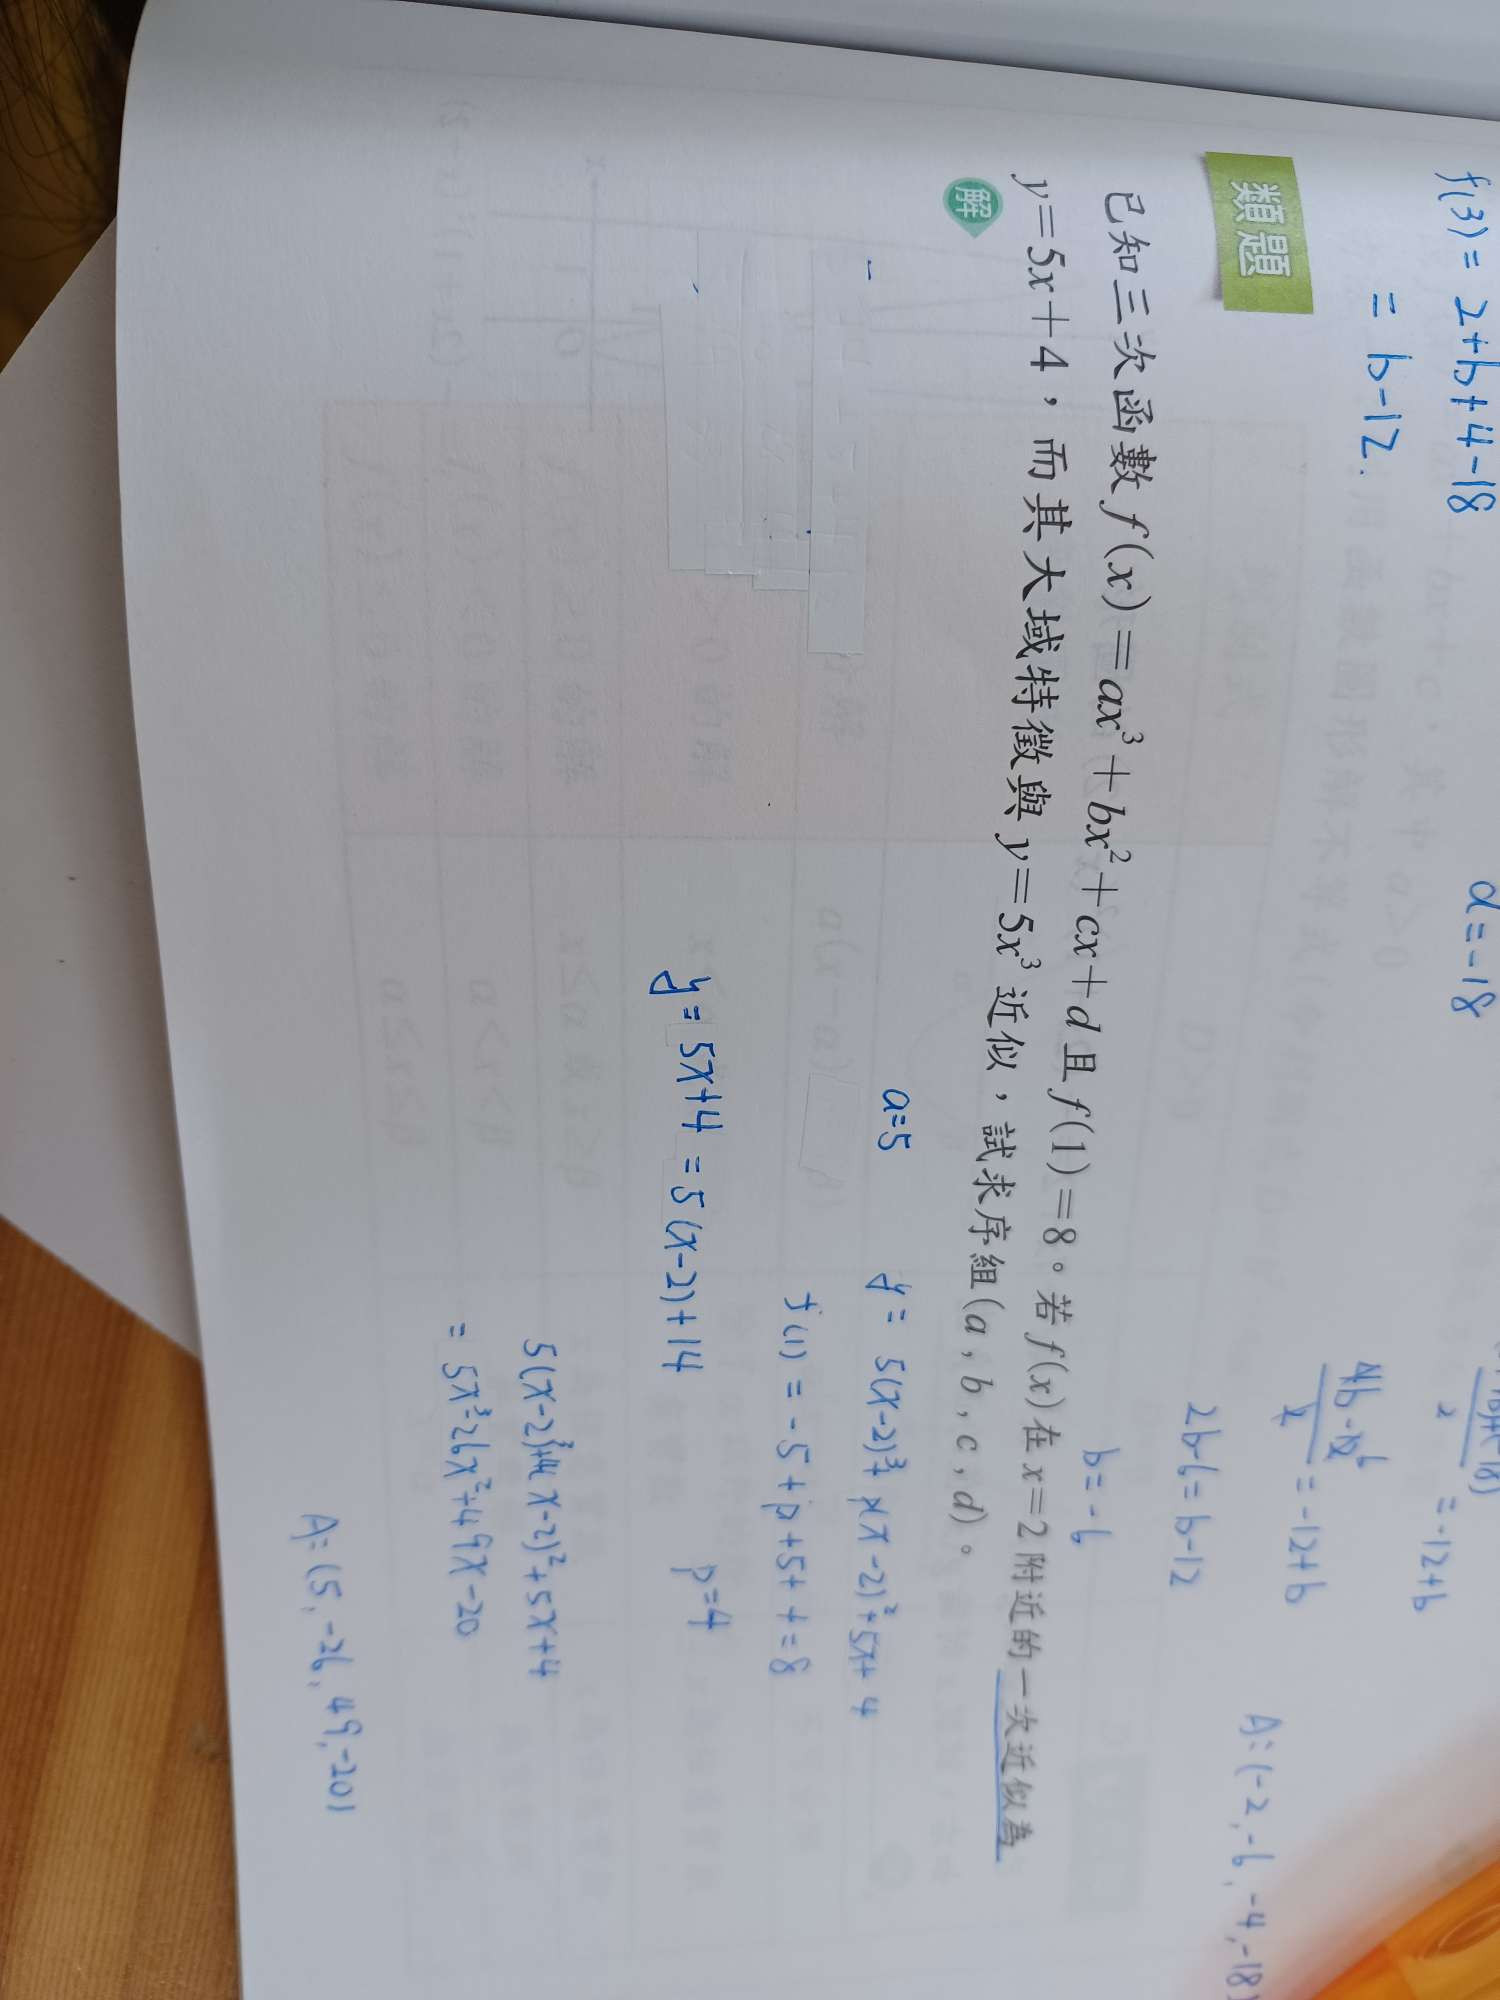 f(3) = 2+b+4-18
= b-12.
d=-18
2
= -12+b
4b-12 6
2
= -12+b
2b-6= b-12
b=-6
A:(-2,-6,-4,-18)
類題
已知三次函數 f(x)=ax³+bx²+cx+d 且 f(1)=8。若 f(x) 在 x=2 附近的一次近似為
y=5x+4,而其大域特徵與 y=5x³ 近似,試求序組(a,b,c,d)。
解
a=5
y= 5(x-2)³+ p(x-2)²+5x+4
f(1) = -5+p+5+4=8
y= 5x+4 = 5(x-2)+14
p=4
5(x-2)³+4(x-2)²+5x+4
= 5x³-26x²+49x-20
A:(5,-26,49,-20)